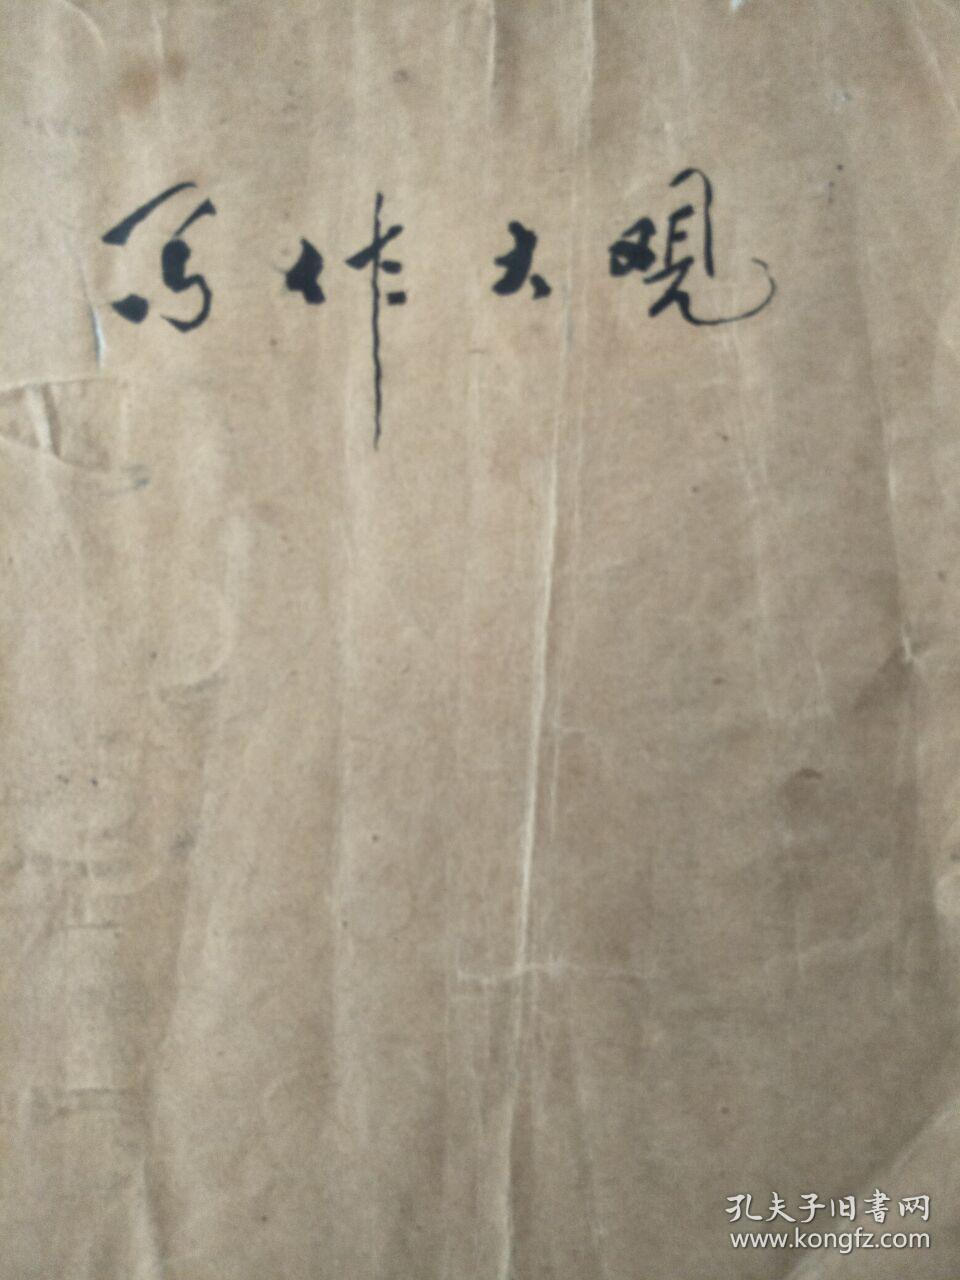 写作大观
孔夫子旧書网
www.kongfz.com